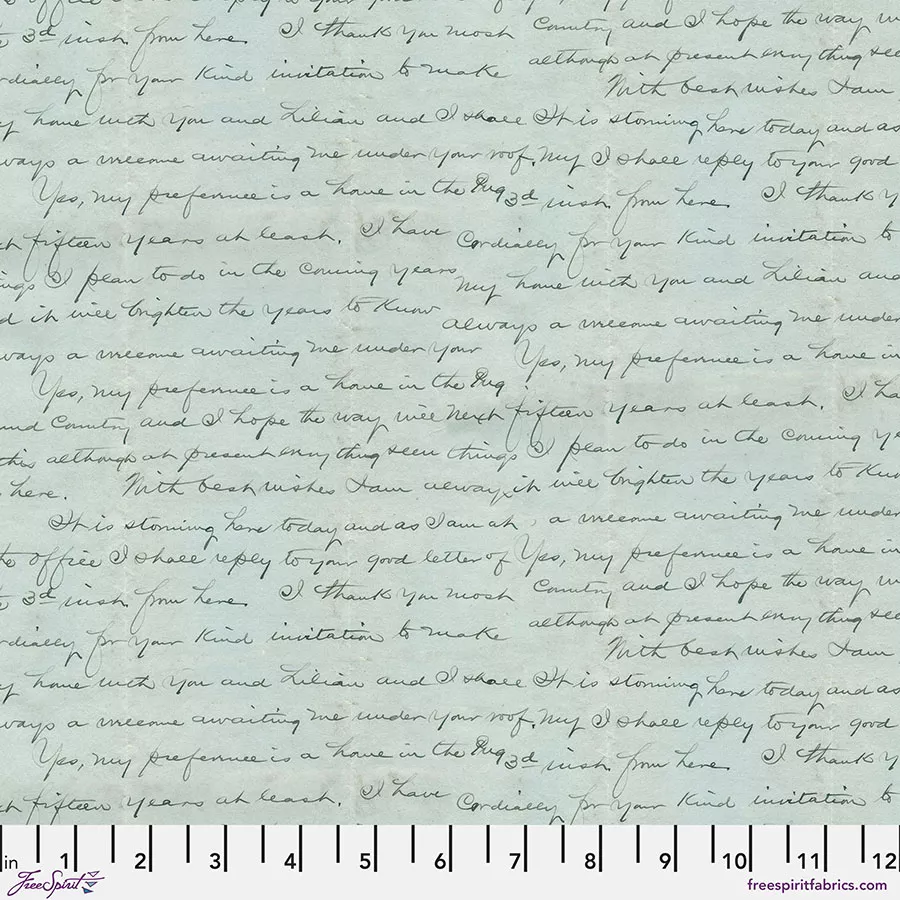 3d inst. from here. I thank you most Country and I hope the way
cordially for your kind invitation to make although at present everything
With best wishes I am
my home with you and Lilian and I shall It is storming here today and as
always a welcome awaiting me under your roof. My I shall reply to your good
Yes, my preference is a home in the 3d inst. from here. I thank
fifteen years at least. I have Cordially for your kind invitation to
things I plan to do in the coming years My home with you and Lilian and
and it will brighten the years to know always a welcome awaiting me under
always a welcome awaiting me under your Yes, my preference is a home in
Yes, my preference is a home in the
and Country and I hope the way will next fifteen years at least. I
this although at present everything seem things I plan to do in the coming
here. With best wishes I am always it will brighten the years to know
It is storming here today and as I am at a welcome awaiting me under
the office I shall reply to your good letter of Yes, my preference is a home in
3d inst. from here. I thank you most Country and I hope the way
cordially for your kind invitation to make although at present everything
With best wishes I am
my home with you and Lilian and I shall It is storming here today and as
always a welcome awaiting me under your roof. My I shall reply to your good
Yes, my preference is a home in the 3d inst. from here. I thank
fifteen years at least. I have Cordially for your kind invitation to
in 1 2 3 4 5 6 7 8 9 10 11 12
FreeSpirit freespiritfabrics.com